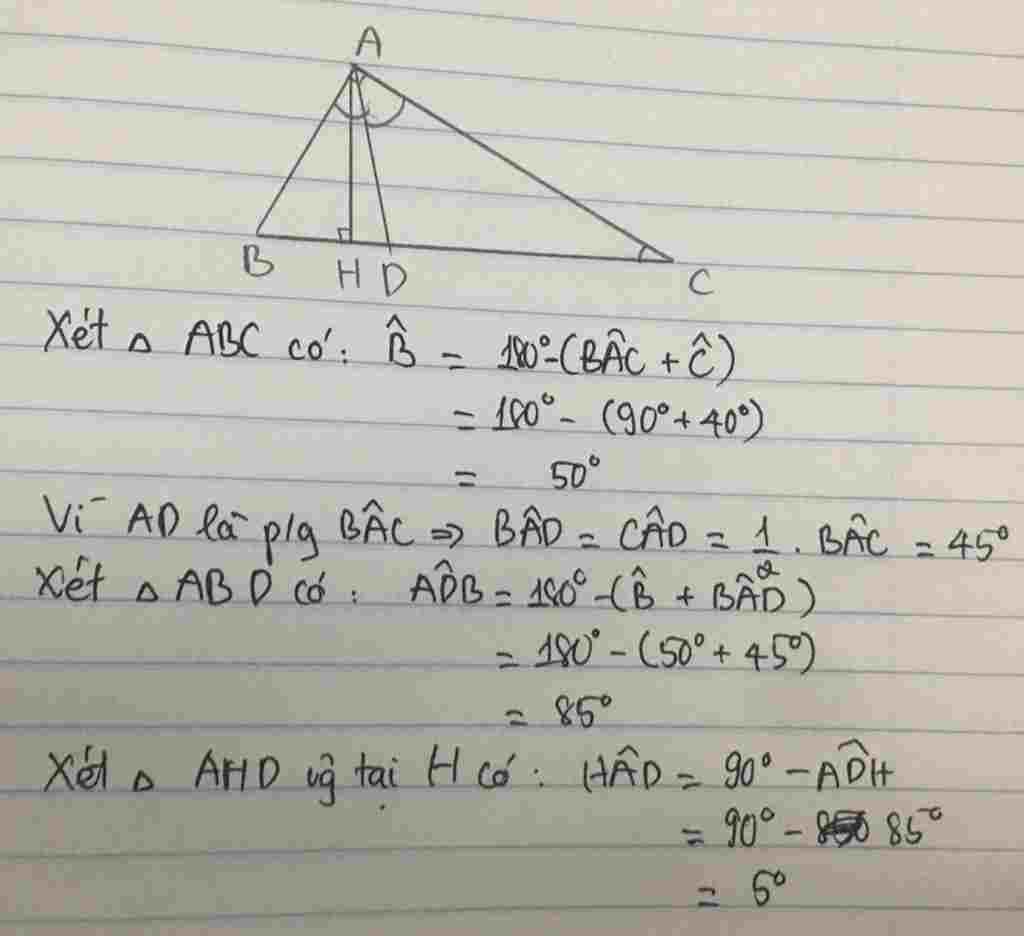 A
B H D C
Xét △ ABC có: B̂ = 180° - (BÂC + Ĉ)
= 180° - (90° + 40°)
= 50°
Vì AD là p/g BÂC ⇒ BÂD = CÂD = 1/2 . BÂC = 45°
Xét △ ABD có: AD̂B = 180° - (B̂ + BÂD)
= 180° - (50° + 45°)
= 85°
Xét △ AHD vg tại H có: HÂD = 90° - AD̂H
= 90° - 85°
= 5°